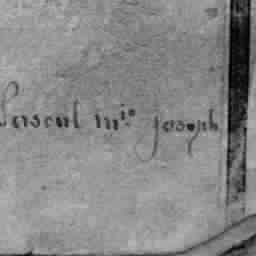 Pascal m.io joseph